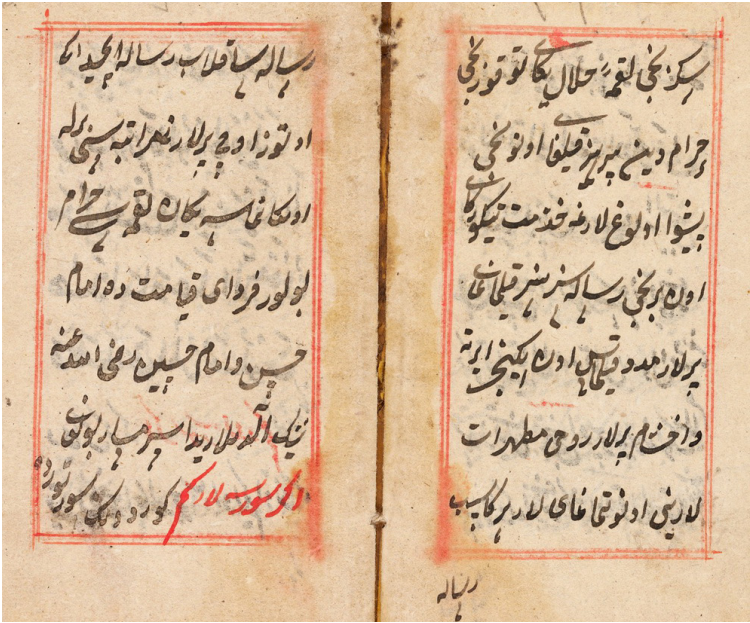 سکزنجی لقمهٔ حلال یکای توقوزنجی
حرام دین پرهیز قیلغای اونونجی
پیشوا اولوغ لارغه خذمت تیکورکای
اون برنجی رساله سیز هنر قیلماغای
پرلار مدد قیلماس اون ایکینجی ایرته
و اخشام پرلار روحی مطهرات
لارینی اونوتماغای لار هر کاسب
رساله
رساله ساقلاب رساله
اوتوز اوچ پرلار برله
یکان لقمه سی حرام
بولور فردای قیامت ده امام
حسن و امام حسین رضی الله عنه
نینک الدیلاریدا شرمسار بولغای
اکر سورسه لار کم